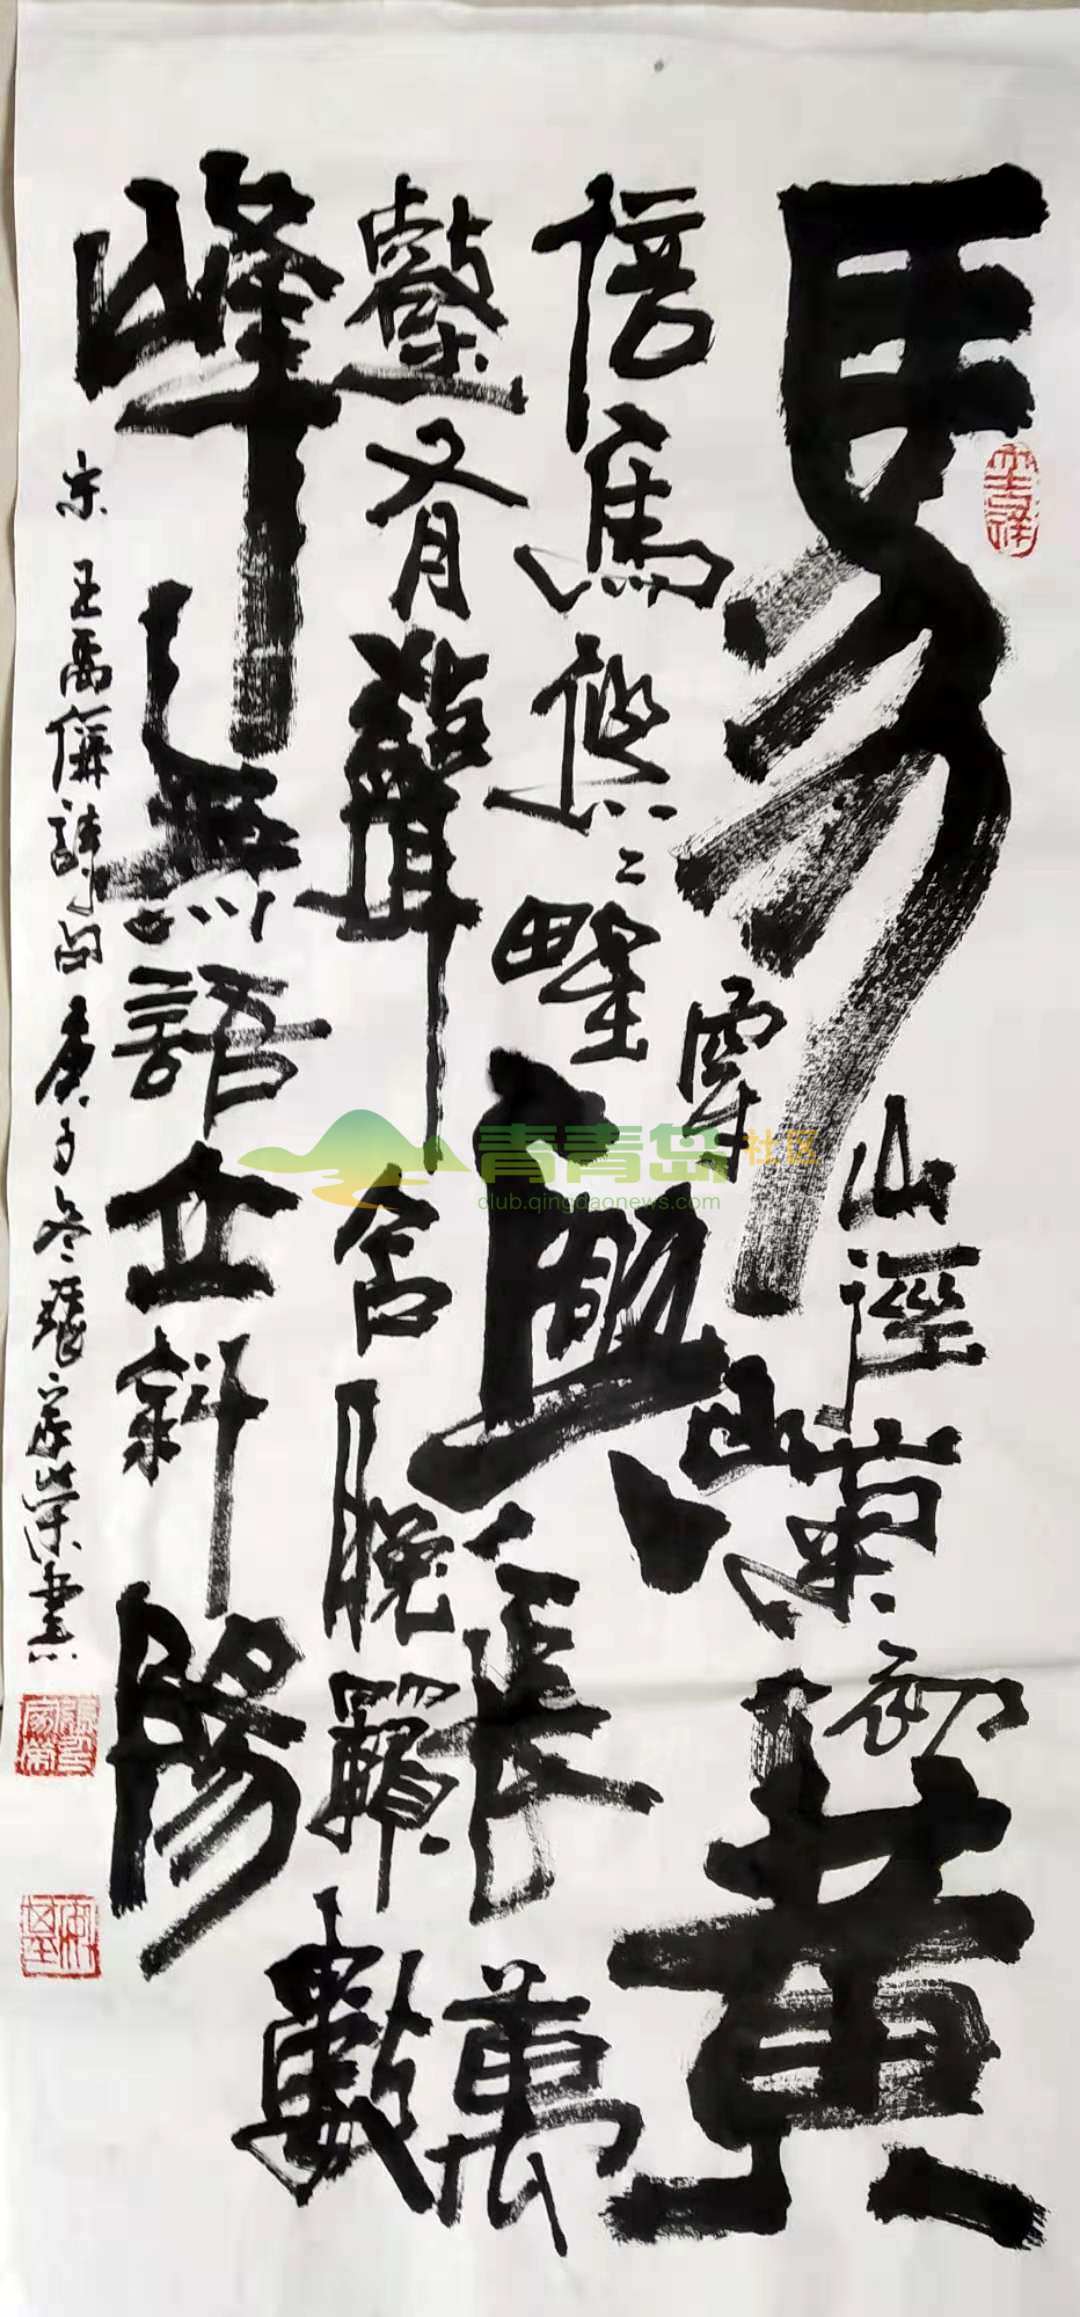 馬穿山徑菊初黃
信馬悠悠野興長萬
壑有聲含晚籟數
峰無語立斜陽
宋王禹偁詩句庚子冬張家榮書
青青岛社区
club.qingdaonews.com